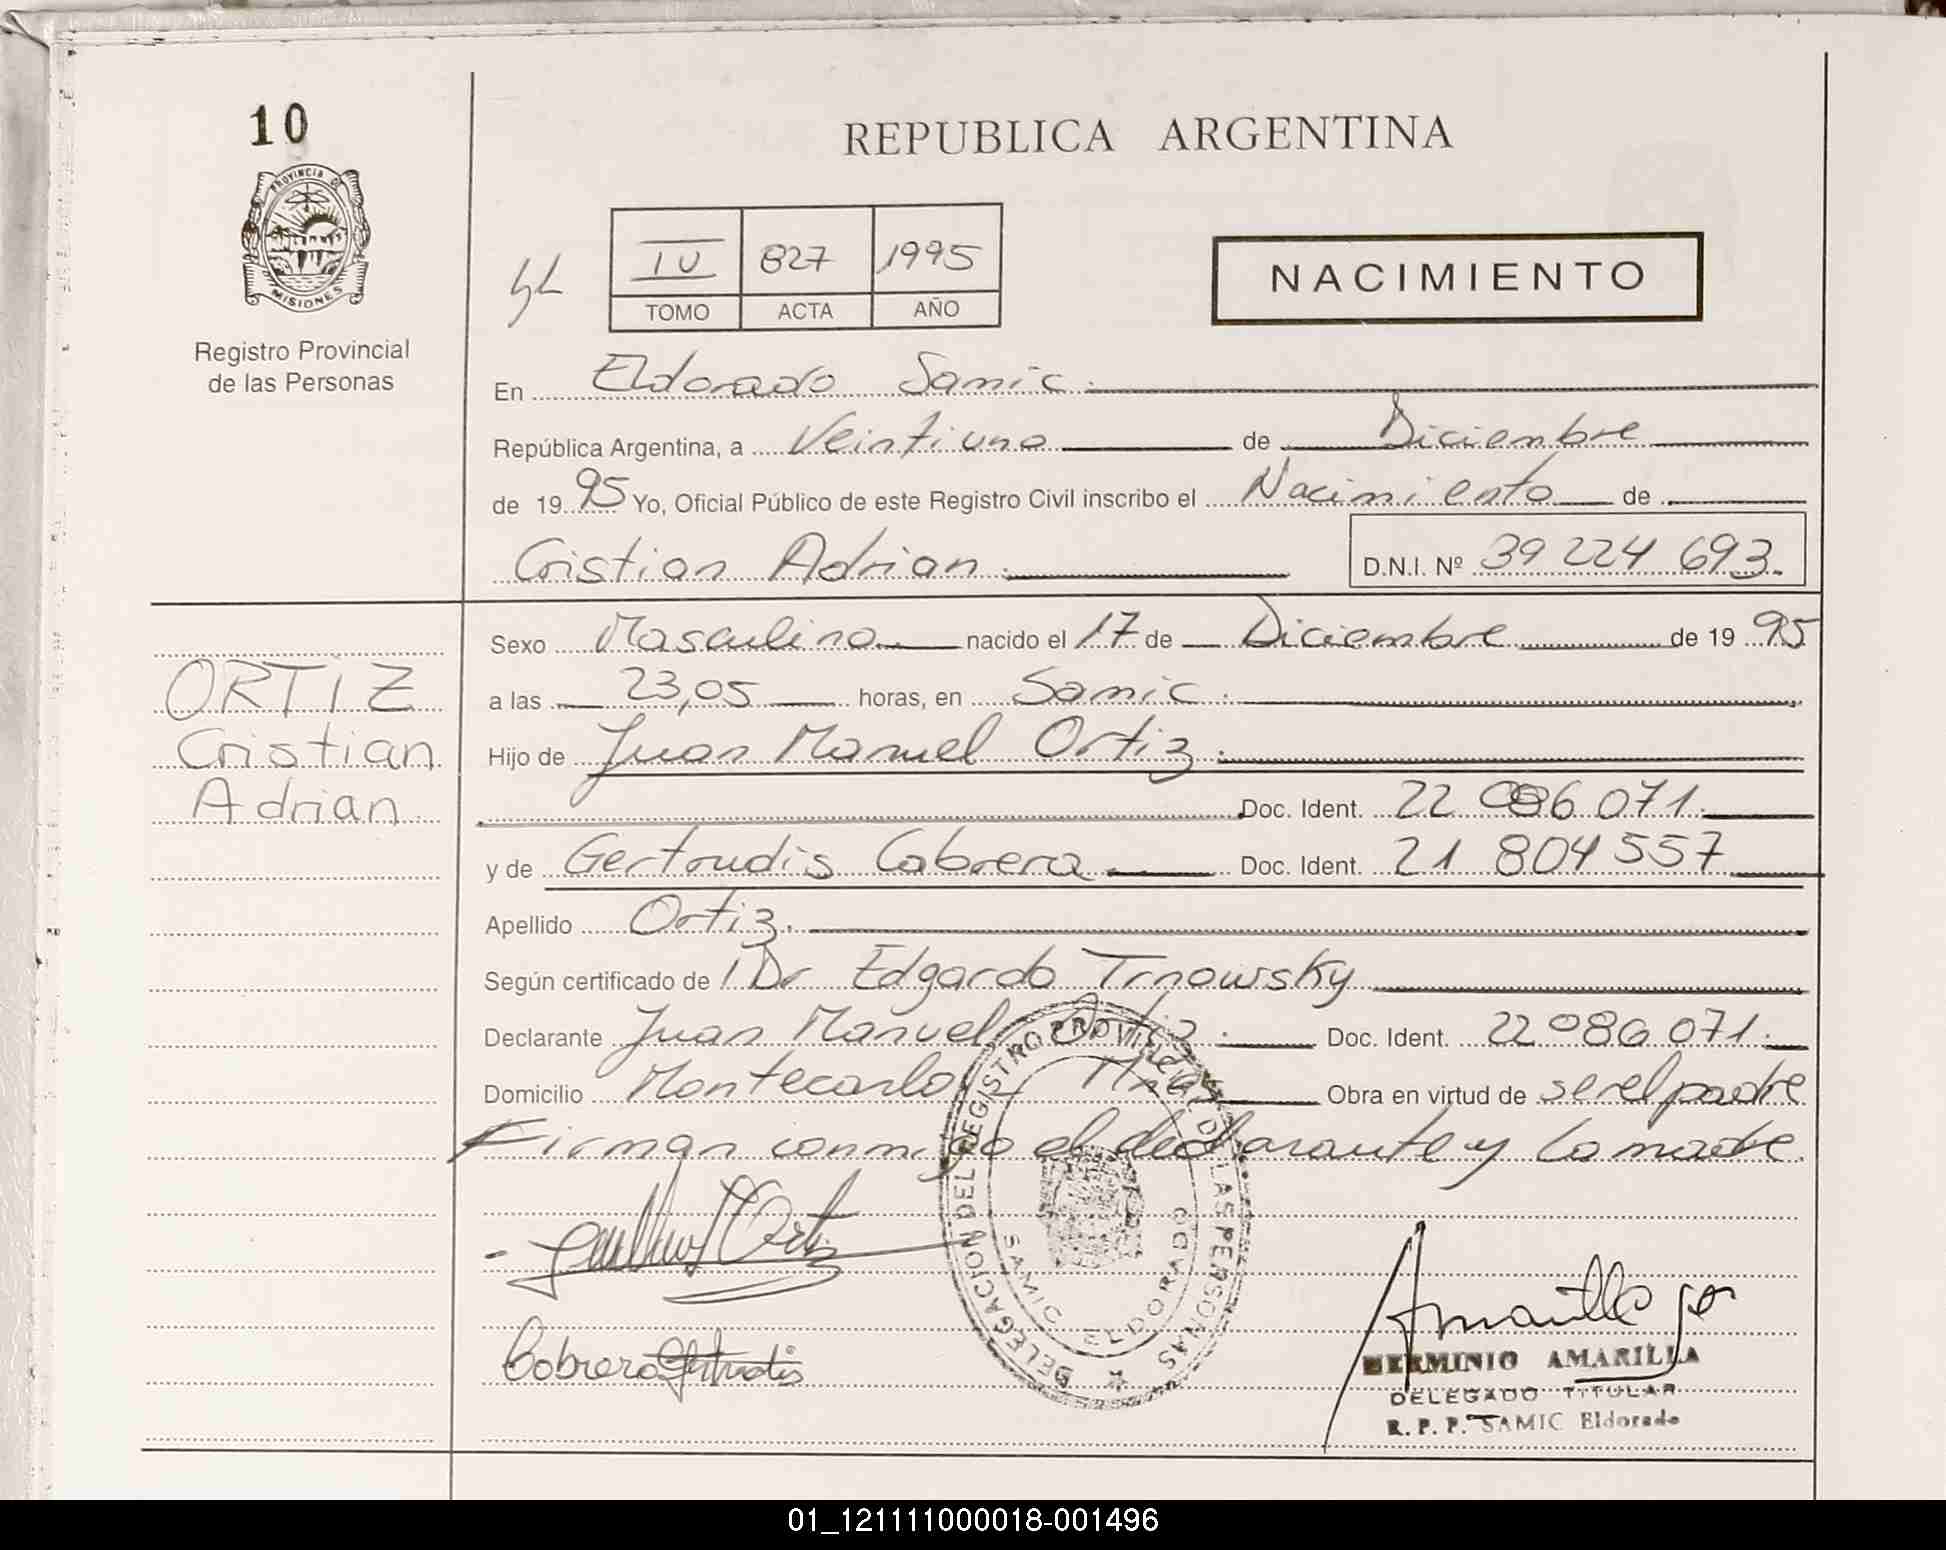 10
PROVINCIA DE
MISIONES
Registro Provincial
de las Personas
REPUBLICA ARGENTINA
IV 827 1995
TOMO ACTA AÑO
NACIMIENTO
En Eldorado Samic.
República Argentina, a Veintiuno de Diciembre
de 1995 Yo, Oficial Público de este Registro Civil inscribo el Nacimiento de
Cristian Adrian. D.N.I. Nº 39 224 693.
Sexo Masculino nacido el 17 de Diciembre de 1995
a las 23,05 horas, en Samic.
Hijo de Juan Manuel Ortiz.
Doc. Ident. 22 086 071.
y de Gertrudis Cabrera Doc. Ident. 21 804 557
Apellido Ortiz.
Según certificado de Dr Edgardo Trnowsky
Declarante Juan Manuel Ortiz. Doc. Ident. 22 086 071.
Domicilio Montecarlo Mnes Obra en virtud de ser el padre
Firman conmigo el declarante y la madre.
ORTIZ
Cristian
Adrian
DELEGACION DEL REGISTRO PROVINCIAL DE LAS PERSONAS
SAMIC ELDORADO
Cabrera Gertrudis
HERMINIO AMARILLA
DELEGADO TITULAR
R. P. P. SAMIC Eldorado
01_121111000018-001496